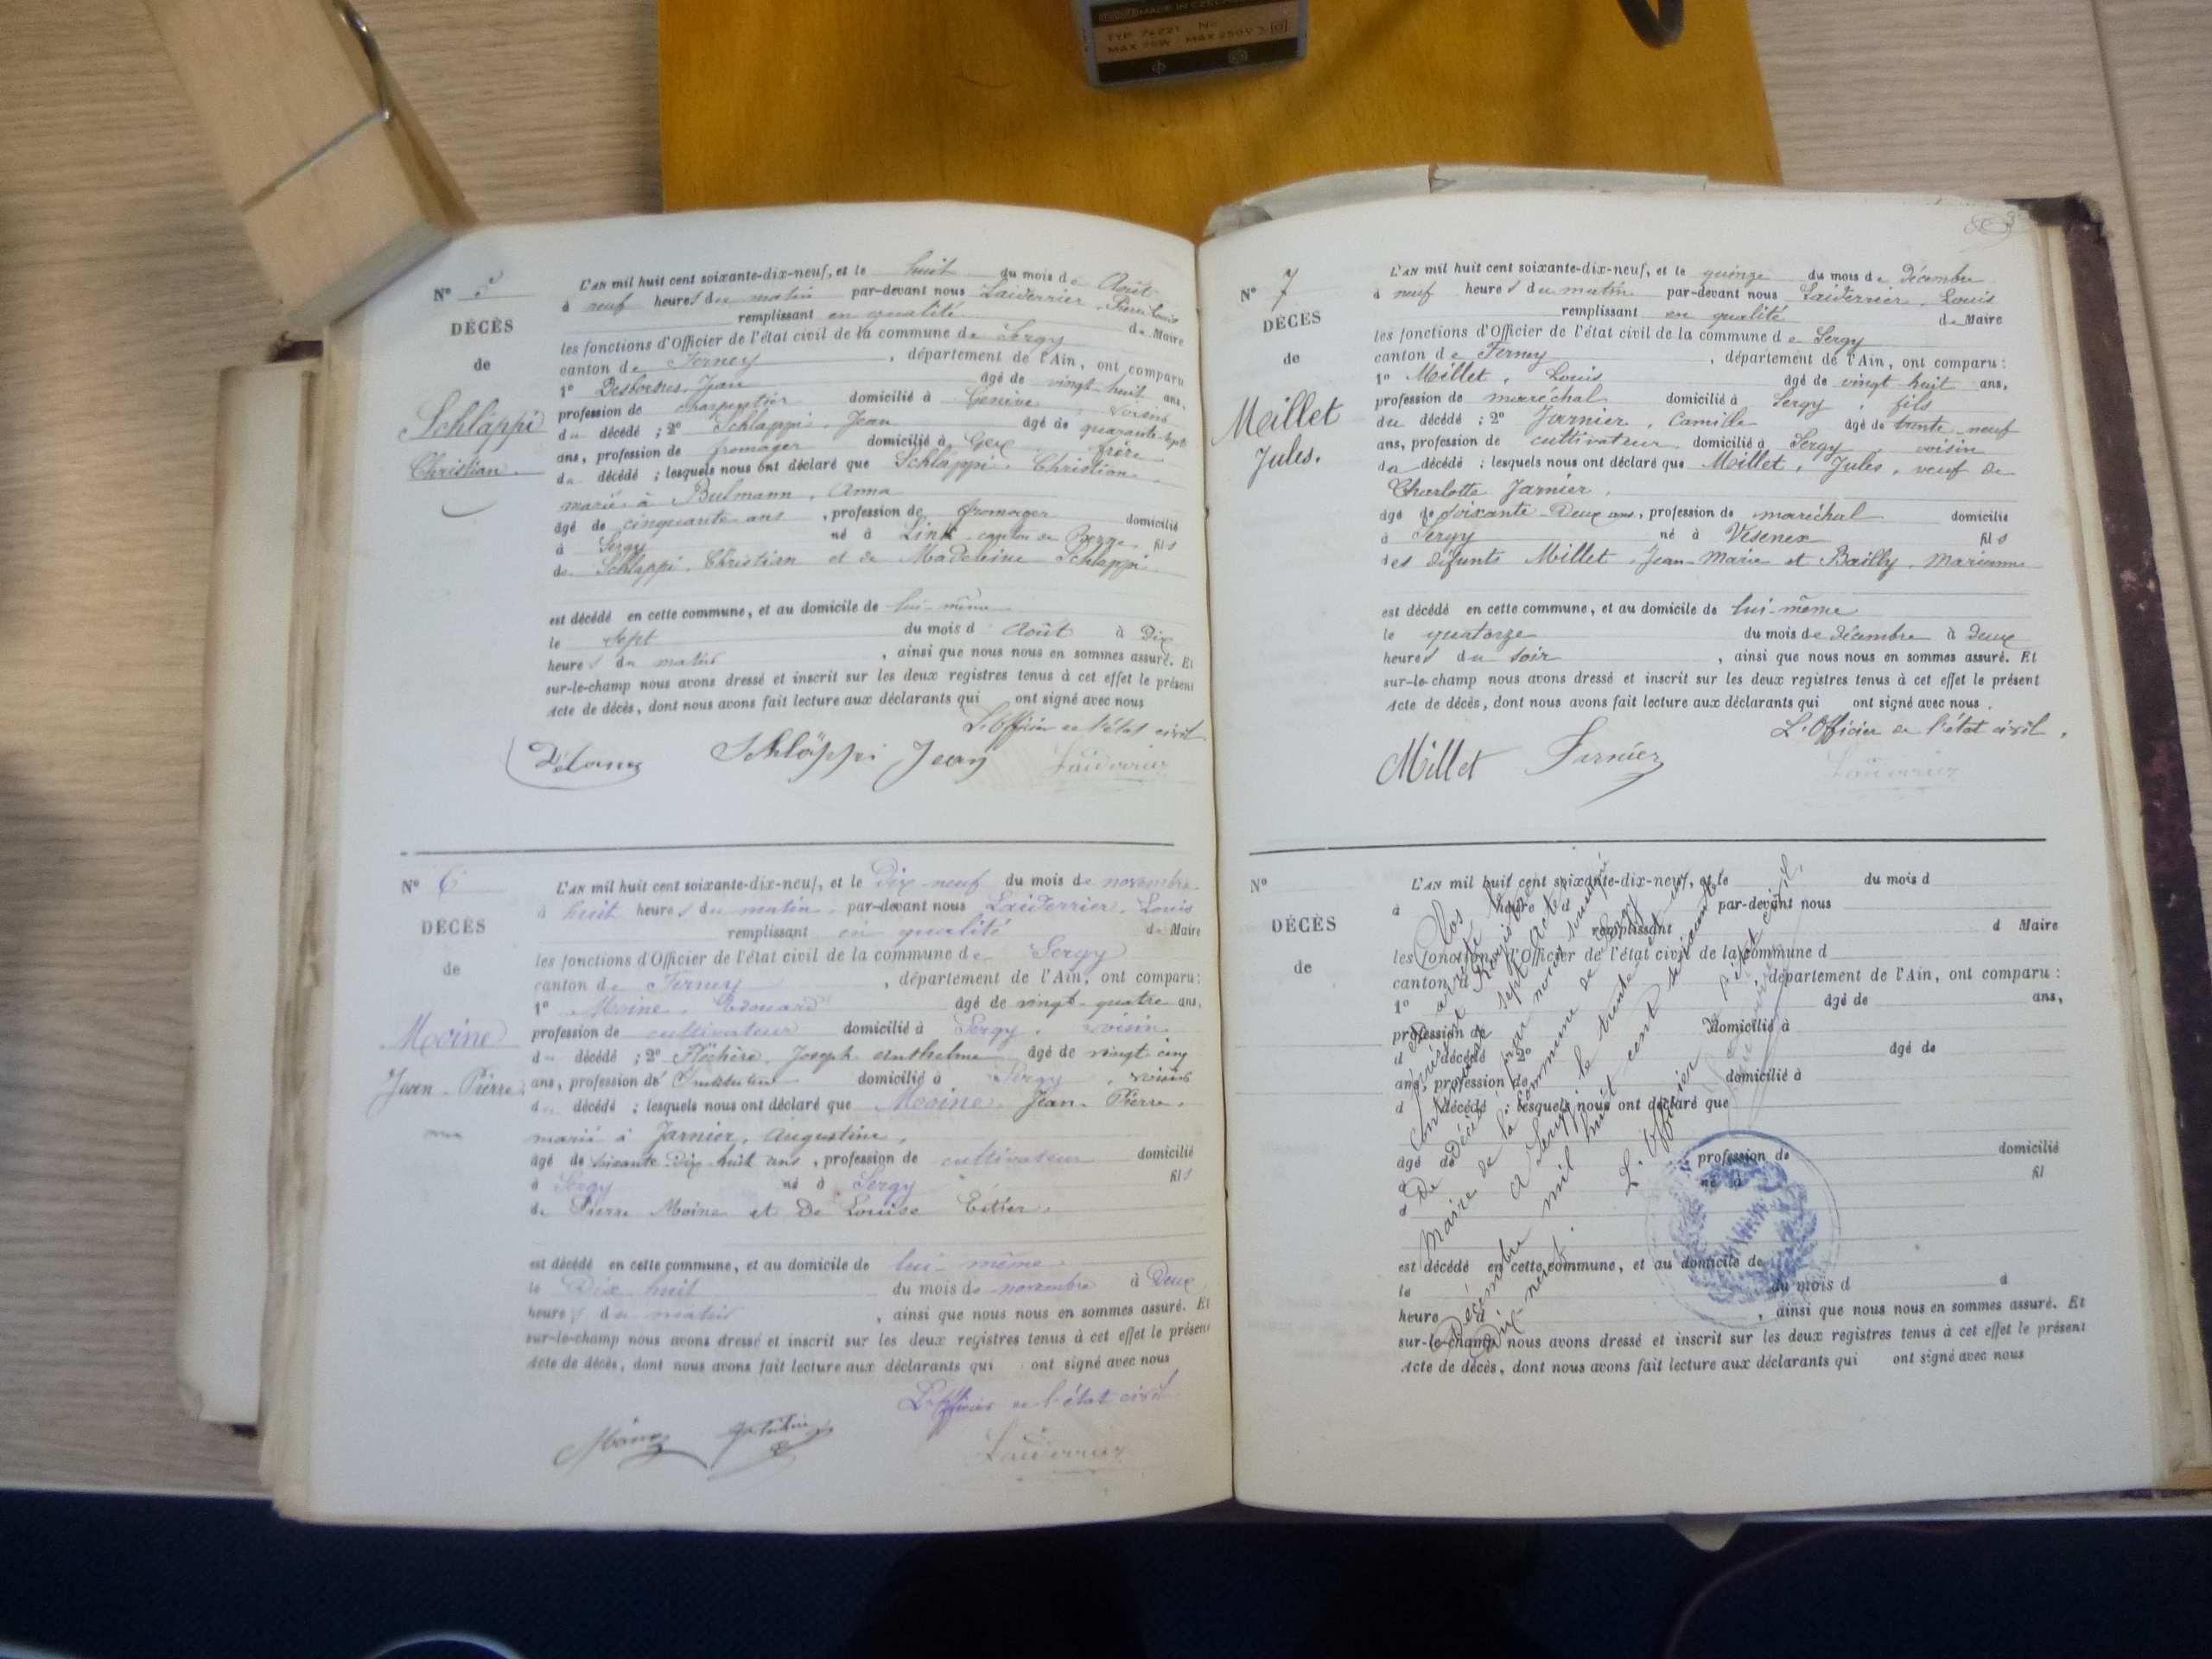 MADE IN CZECH
TYP 74221 Nº
MAX 25W MAX 250V
Nº 5
DÉCÈS
de
Schläppi
Christian
L'AN mil huit cent soixante-dix-neuf, et le huit du mois de Août
à neuf heures du matin par-devant nous Laiderrier, Louis
remplissant en qualité de Maire
les fonctions d'Officier de l'état civil de la commune de Sergy
canton de Ferney, département de l'Ain, ont comparu
1º Jean âgé de vingt-huit ans,
profession de charpentier domicilié à Genève
du décédé ; 2º Schlappi, Jean âgé de quarante-sept
ans, profession de fromager domicilié à Gex, frère
du décédé ; lesquels nous ont déclaré que Schläppi, Christian
marié à Bulmann, Anna
âgé de cinquante ans, profession de fromager domicilié
à Sergy né à Link canton de Berne, fils
de Schlappi Christian et de Madeleine Schlappi
est décédé en cette commune, et au domicile de lui-même
le sept du mois d Août à Dix
heures du matin, ainsi que nous nous en sommes assuré. Et
sur-le-champ nous avons dressé et inscrit sur les deux registres tenus à cet effet le présent
Acte de décès, dont nous avons fait lecture aux déclarants qui ont signé avec nous
L'Officier de l'état civil
Schläppi Jean Laiderrier
Nº 6
DÉCÈS
de
Moine
Jean-Pierre
L'AN mil huit cent soixante-dix-neuf, et le Dix-neuf du mois de novembre
à huit heures du matin, par-devant nous Laiderrier, Louis
remplissant en qualité de Maire
les fonctions d'Officier de l'état civil de la commune de Sergy
canton de Ferney, département de l'Ain, ont comparu :
1º Moine, Edouard âgé de vingt-quatre ans,
profession de cultivateur domicilié à Sergy, voisin
du décédé ; 2º Joseph Anthelme âgé de vingt cinq
ans, profession de Instituteur domicilié à Sergy, voisin
du décédé ; lesquels nous ont déclaré que Moine, Jean-Pierre,
marié à Jarnier, Augustine,
âgé de soixante Dix-huit ans, profession de cultivateur domicilié
à Sergy né à Sergy fils
de Pierre Moine et de Louise
est décédé en cette commune, et au domicile de lui-même
le Dix huit du mois de novembre à Deux
heures du matin, ainsi que nous nous en sommes assuré. Et
sur-le-champ nous avons dressé et inscrit sur les deux registres tenus à cet effet le présent
Acte de décès, dont nous avons fait lecture aux déclarants qui ont signé avec nous
L'Officier de l'état civil
Moine Laiderrier
Nº 7
DÉCÈS
de
Meillet
Jules.
L'AN mil huit cent soixante-dix-neuf, et le quinze du mois de Décembre
à neuf heures du matin par-devant nous Laiderrier, Louis
remplissant en qualité de Maire
les fonctions d'Officier de l'état civil de la commune de Sergy
canton de Ferney, département de l'Ain, ont comparu :
1º Millet, Louis âgé de vingt huit ans,
profession de maréchal domicilié à Sergy, fils
du décédé ; 2º Jarnier, Camille âgé de trente-neuf
ans, profession de cultivateur, domicilié à Sergy, voisin
du décédé ; lesquels nous ont déclaré que Millet, Jules, veuf de
Charlotte Jarnier,
âgé de soixante-Deux ans, profession de maréchal domicilié
à Sergy né à Vésenex fils
des défunts Millet, Jean-Marie et Bailly, Marianne
est décédé en cette commune, et au domicile de lui-même
le quatorze du mois de décembre à deux
heures du soir, ainsi que nous nous en sommes assuré. Et
sur-le-champ nous avons dressé et inscrit sur les deux registres tenus à cet effet le présent
Acte de décès, dont nous avons fait lecture aux déclarants qui ont signé avec nous.
L'Officier de l'état civil.
Millet Jarnier Laiderrier
Nº
DÉCÈS
de
L'AN mil huit cent soixante-dix-neuf, et le du mois d
à heure d par-devant nous
remplissant d Maire
les fonctions d'Officier de l'état civil de la commune d
canton d, département de l'Ain, ont comparu :
1º âgé de ans,
profession de domicilié à
d décédé ; 2º âgé de
ans, profession de domicilié à
d décédé ; lesquels nous ont déclaré que
âgé de profession de domicilié
à né à fil
d
est décédé en cette commune, et au domicile de
le du mois d à
heure d, ainsi que nous nous en sommes assuré. Et
sur-le-champ nous avons dressé et inscrit sur les deux registres tenus à cet effet le présent
Acte de décès, dont nous avons fait lecture aux déclarants qui ont signé avec nous
Clos et arrêté le
présent Registre
contenant sept actes
de Décès par nous soussigné
Maire de la commune de Sergy
A Sergy le trente et un
Décembre mil huit cent soixante
Dix neuf.
L'Officier de l'état civil,